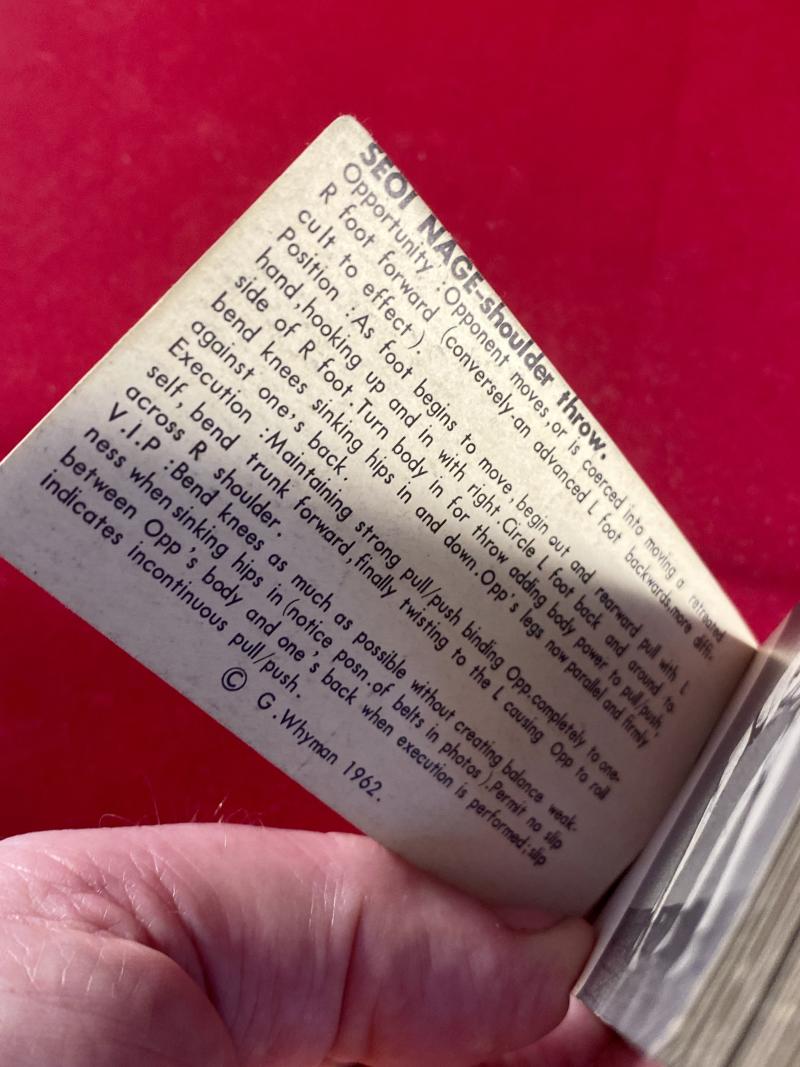 SEOI NAGE-shoulder throw.
Opportunity :Opponent moves,or is coerced into moving a retreated
R foot forward (conversely-an advanced L foot backwards,more diffi-
cult to effect).
Position :As foot begins to move,begin out and rearward pull with L
hand,hooking up and in with right.Circle L foot back and around to
side of R foot.Turn body in for throw adding body power to pull/push,
bend knees sinking hips in and down.Opp's legs now parallel and firmly
against one's back.
Execution :Maintaining strong pull/push binding Opp.completely to one-
self, bend trunk forward,finally twisting to the L causing Opp to roll
across R shoulder.
V.I.P :Bend knees as much as possible without creating balance weak-
ness when sinking hips in (notice posn.of belts in photos ).Permit no slip
between Opp's body and one's back when execution is performed;slip
indicates incontinuous pull/push.
© G.Whyman 1962.